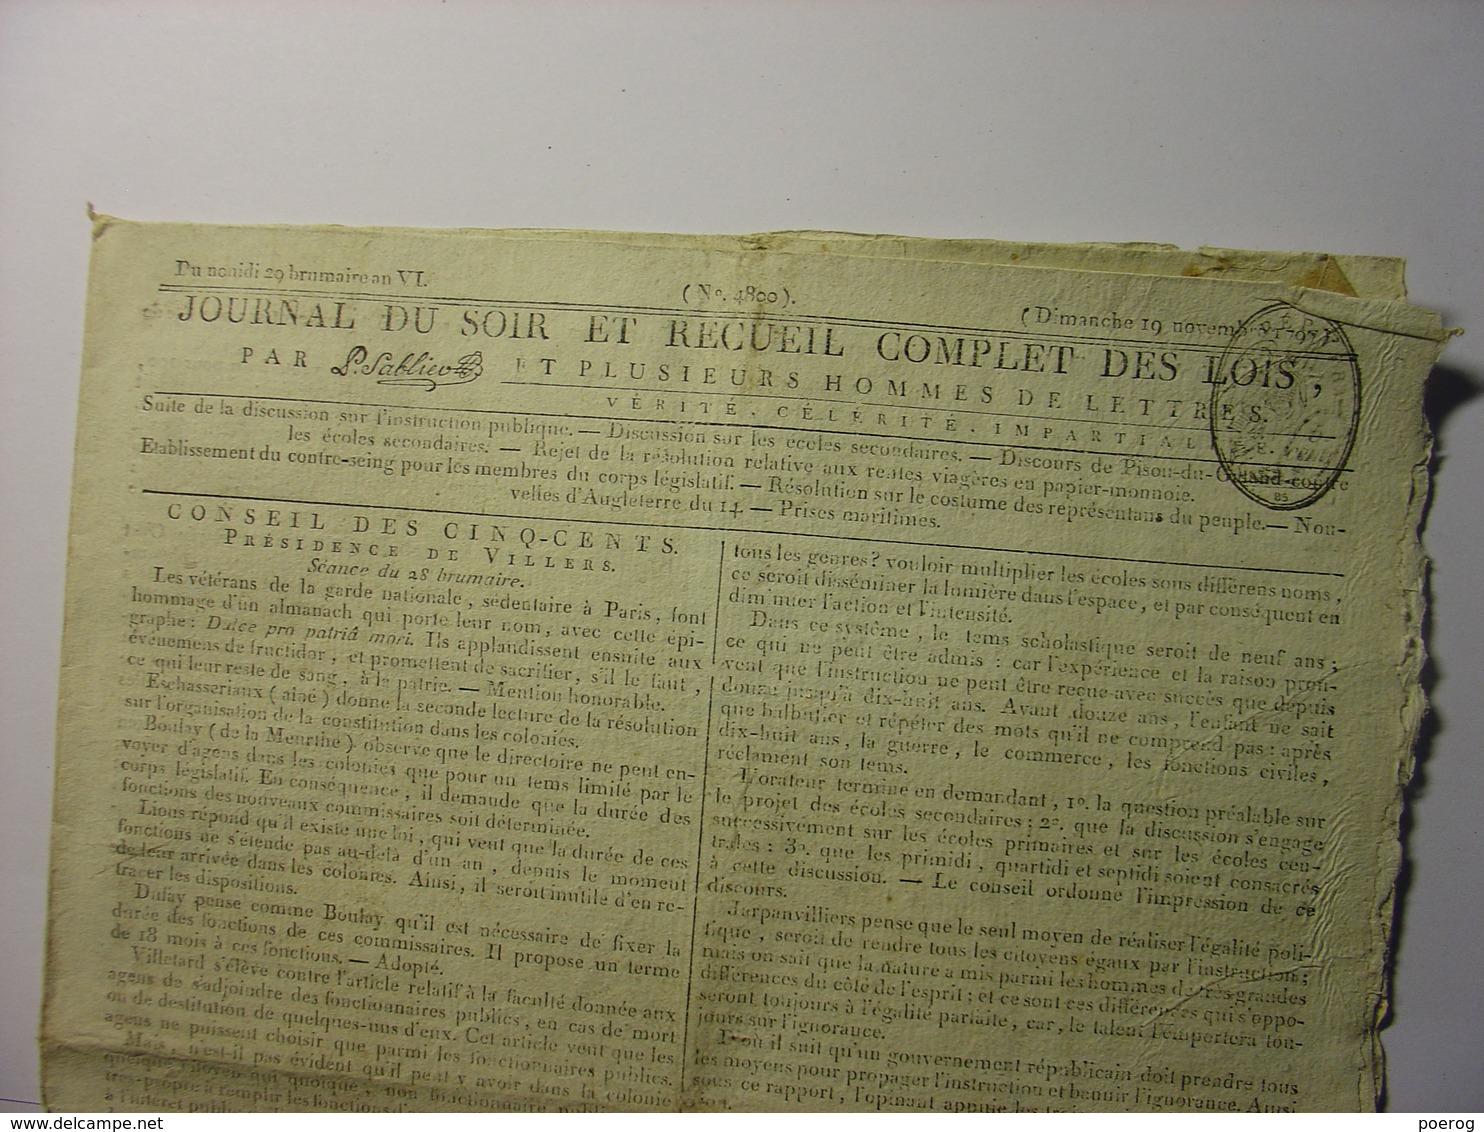 Du nonidi 29 brumaire an VI.
( N°. 4800 ).
( Dimanche 19 novembre
JOURNAL DU SOIR ET RECUEIL COMPLET DES LOIS ,
PAR P. Sablier ET PLUSIEURS HOMMES DE LETTRES.
VÉRITÉ. CÉLÉRITÉ. IMPARTIAL
Suite de la discussion sur l'instruction publique. — Discussion sur les écoles secondaires. — Discours de Pison-du-Galand contre
les écoles secondaires. — Rejet de la résolution relative aux rentes viagères en papier-monnoie.
Etablissement du contre-seing pour les membres du corps législatif. — Résolution sur le costume des représentans du peuple. — Nou-
velles d'Angleterre du 14. — Prises maritimes.
85
CONSEIL DES CINQ-CENTS.
PRÉSIDENCE DE VILLERS.
Séance du 28 brumaire.
Les vétérans de la garde nationale, sédentaire à Paris, font
hommage d'un almanach qui porte leur nom, avec cette épi-
graphe : Dulce pro patriâ mori. Ils applaudissent ensuite aux
événemens de fructidor, et promettent de sacrifier, s'il le faut ,
ce qui leur reste de sang, à la patrie. — Mention honorable.
Eschasseriaux ( aîné ) donne la seconde lecture de la résolution
sur l'organisation de la constitution dans les colonies.
Boulay ( de la Meurthe ) observe que le directoire ne peut en-
voyer d'agens dans les colonies que pour un tems limité par le
corps législatif. En conséquence , il demande que la durée des
fonctions des nouveaux commissaires soit déterminée.
Lions répond qu'il existe une loi , qui veut que la durée de ces
fonctions ne s'étende pas au-delà d'un an , depuis le moment
de leur arrivée dans les colonies. Ainsi , il seroit inutile d'en re-
tracer les dispositions.
Dufay pense comme Boulay qu'il est nécessaire de fixer la
durée des fonctions de ces commissaires. Il propose un terme
de 18 mois à ces fonctions. — Adopté.
Villetard s'élève contre l'article relatif à la faculté donnée aux
agens de s'adjoindre des fonctionnaires publics , en cas de mort
ou de destitution de quelques-uns d'eux. Cet article veut que les
agens ne puissent choisir que parmi les fonctionnaires publics.
Mais , n'est-il pas évident qu'il peut y avoir dans la colonie
quelque citoyen qui quoique , non fonctionnaire
très-propre à remplir les fonctions
à l'intérêt
tous les genres? vouloir multiplier les écoles sous différens noms ,
ce seroit disséminer la lumière dans l'espace , et par conséquent en
diminuer l'action et l'intensité.
Dans ce système , le tems scholastique seroit de neuf ans ;
ce qui ne peut être admis : car l'expérience et la raison prou-
vent que l'instruction ne peut être reçue avec succès que depuis
douze jusqu'à dix-huit ans. Avant douze ans , l'enfant ne sait
que balbutier et répéter des mots qu'il ne comprend pas : après
dix-huit ans, la guerre , le commerce , les fonctions civiles ,
réclament son tems.
L'orateur termine en demandant , 1°. la question préalable sur
le projet des écoles secondaires ; 2°. que la discussion s'engage
successivement sur les écoles primaires et sur les écoles cen-
trales : 3°. que les primidi, quartidi et septidi soient consacrés
à cette discussion. — Le conseil ordonne l'impression de ce
discours.
Jarpanvilliers pense que le seul moyen de réaliser l'égalité poli-
tique , seroit de rendre tous les citoyens égaux par l'instruction ;
mais on sait que la nature a mis parmi les hommes de très-grandes
différences du côté de l'esprit ; et ce sont ces différences qui s'oppo-
seront toujours à l'égalité parfaite , car, le talent l'emportera tou-
jours sur l'ignorance.
D'où il suit qu'un gouvernement républicain doit prendre tous
les moyens pour propager l'instruction et bannir l'ignorance. Ainsi
sous ce rapport , l'opinant appuie les
delcampe.net
poerog